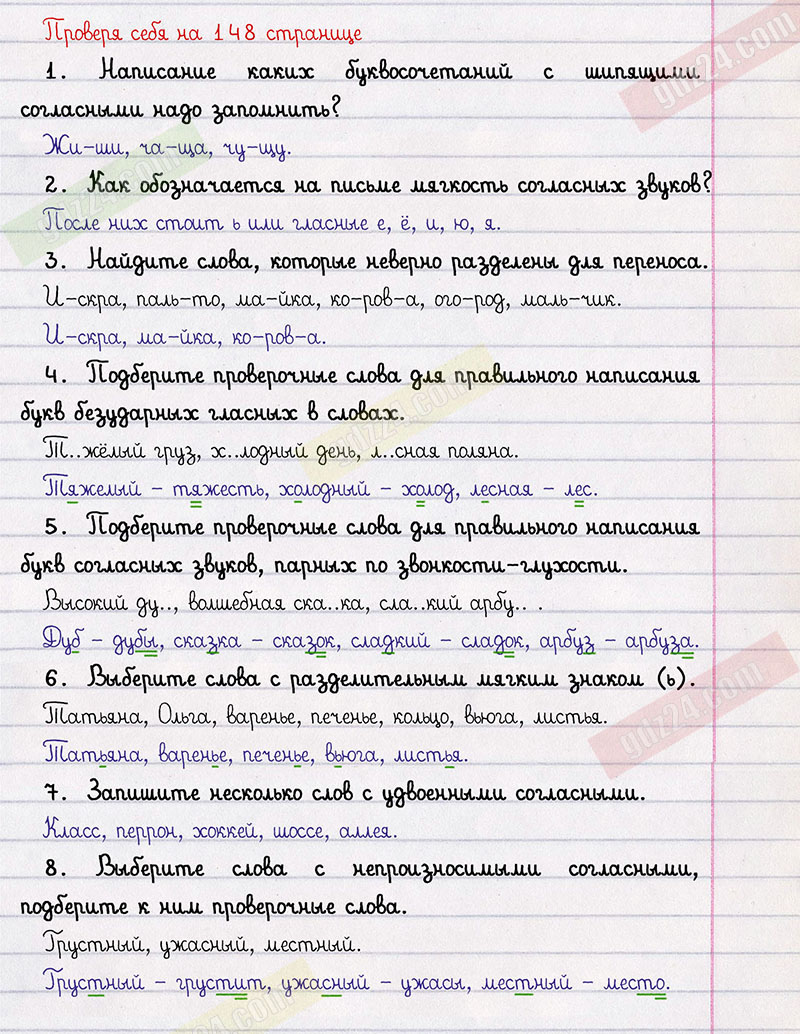 Проверя себя на 148 странице
1. Написание каких буквосочетаний с шипящими
согласными надо запомнить?
Жи-ши, ча-ща, чу-щу.
2. Как обозначается на письме мягкость согласных звуков?
После них стоит ь или гласные е, ё, и, ю, я.
3. Найдите слова, которые неверно разделены для переноса.
И-скра, паль-то, ма-йка, ко-ров-а, ого-род, маль-чик.
И-скра, ма-йка, ко-ров-а.
4. Подберите проверочные слова для правильного написания
букв безударных гласных в словах.
Т..жёлый груз, х..лодный день, л..сная поляна.
Тяжелый - тяжесть, холодный - холод, лесная - лес.
5. Подберите проверочные слова для правильного написания
букв согласных звуков, парных по звонкости-глухости.
Высокий ду.., волшебная ска..ка, сла..кий арбу.. .
Дуб - дубы, сказка - сказок, сладкий - сладок, арбуз - арбуза.
6. Выберите слова с разделительным мягким знаком (ь).
Татьяна, Ольга, варенье, печенье, кольцо, вьюга, листья.
Татьяна, варенье, печенье, вьюга, листья.
7. Запишите несколько слов с удвоенными согласными.
Класс, перрон, хоккей, шоссе, аллея.
8. Выберите слова с непроизносимыми согласными,
подберите к ним проверочные слова.
Грустный, ужасный, местный.
Грустный - грустит, ужасный - ужасы, местный - место.
gdz24.com
gdz24.com
gdz24.com
gdz24.com
gdz24.com